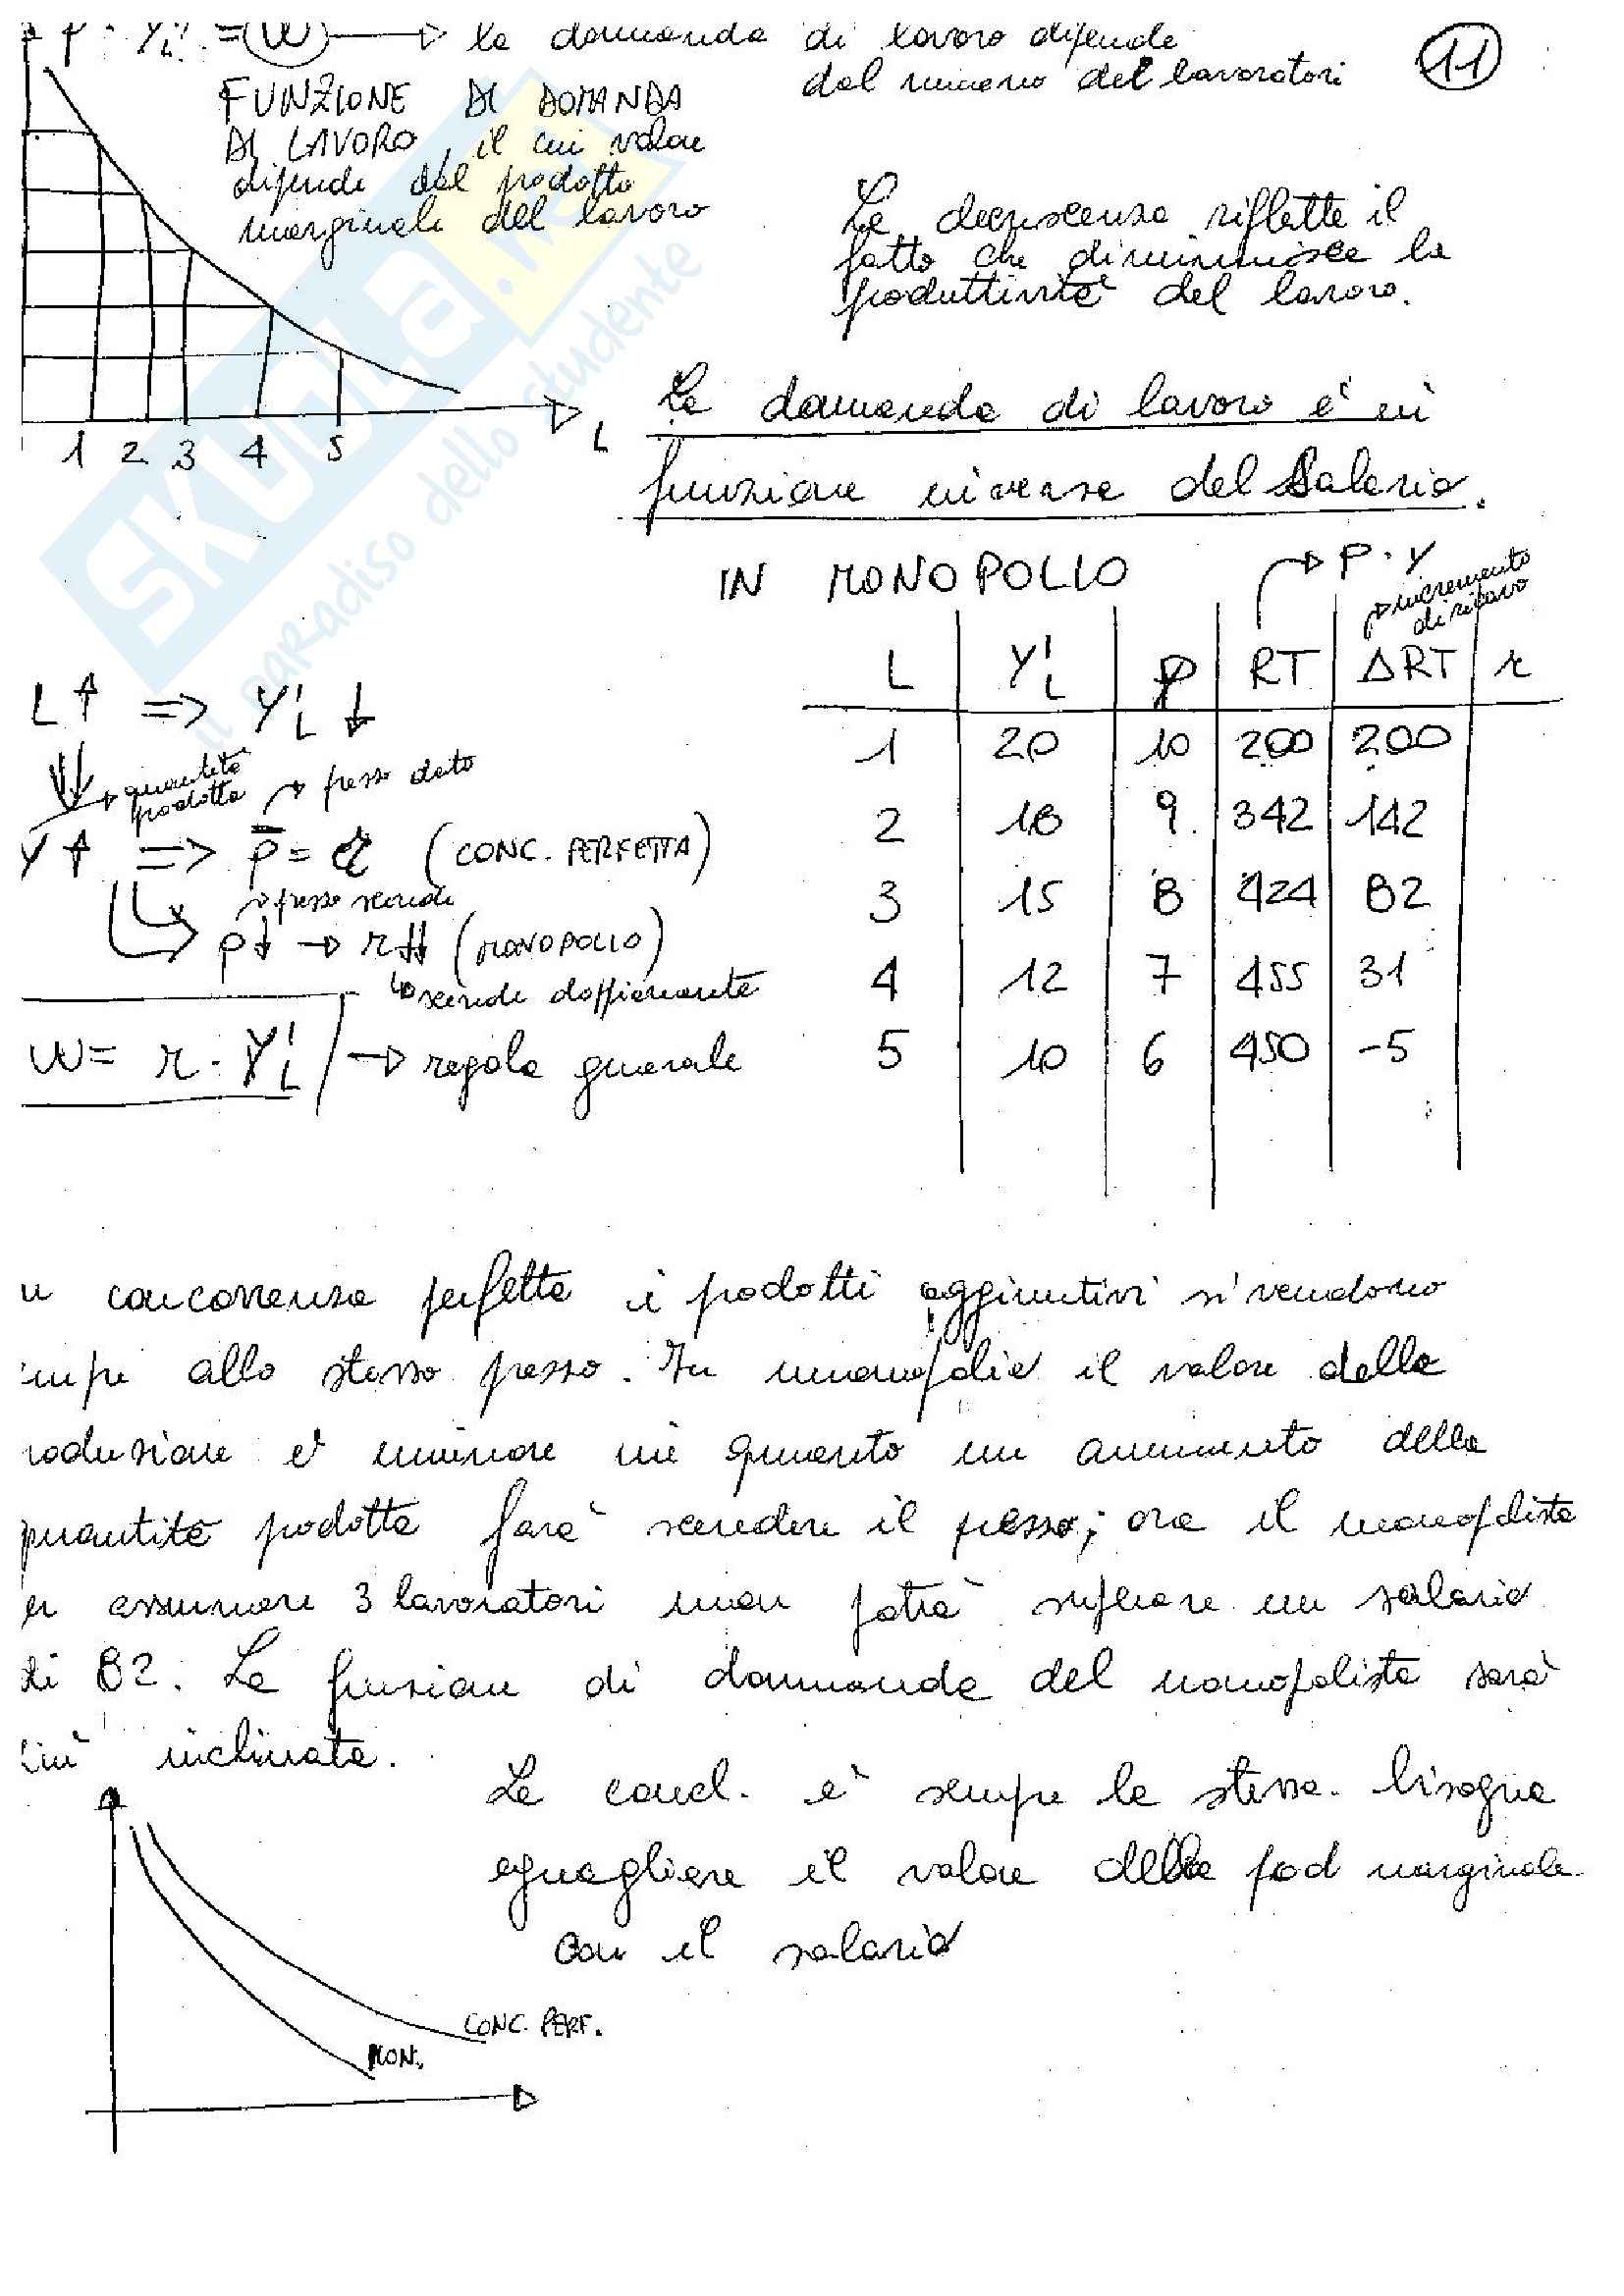 p · Y'L = W → la domanda di lavoro dipende
dal numero dei lavoratori
11
FUNZIONE DI DOMANDA
DI LAVORO, il cui valore
dipende dal prodotto
marginale del lavoro
La decrescenza riflette il
fatto che diminuisce la
produttività del lavoro.
1 2 3 4 5
L
La domanda di lavoro è in
funzione inversa del Salario.
IN MONOPOLIO
→ P · Y
→ incremento
di ricavo
L | Y'L | p | RT | ΔRT | r
1 | 20 | 10 | 200 | 200
2 | 18 | 9 | 342 | 142
3 | 15 | 8 | 424 | 82
4 | 12 | 7 | 455 | 31
5 | 10 | 6 | 450 | -5
L↑ => Y'L ↓
→ quantità
prodotta
→ prezzo dato
Y↑ => p̄ = r (CONC. PERFETTA)
→ prezzo scende
p↓ → r↓↓ (MONOPOLIO)
↳ scende doppiamente
W = r · Y'L → regola generale
n concorrenza perfetta i prodotti aggiuntivi si vendono
empre allo stesso prezzo. In monopolio il valore della
roduzione è minore in quanto un aumento della
quantità prodotta farà scendere il prezzo; ora il monopolista
er assumere 3 lavoratori non potrà superare un salario
di 82. La funzione di domanda del monopolista sarà
più inclinata.
La concl. è sempre la stessa. bisogna
eguagliare il valore della prod marginale
con il salario
CONC. PERF.
MON.
SKUOLA.NET
il paradiso dello studente